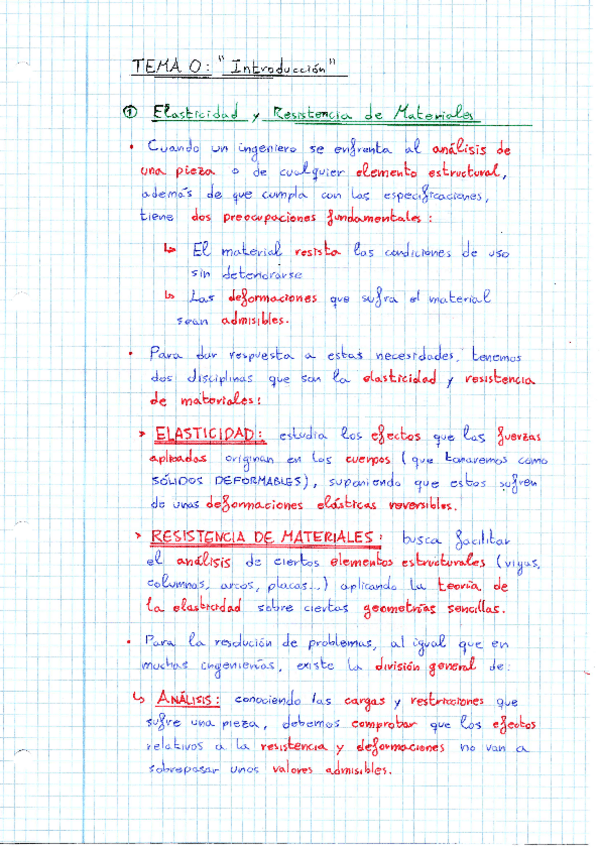 TEMA 0: "Introducción"
① Elasticidad y Resistencia de Materiales
• Cuando un ingeniero se enfrenta al análisis de
una pieza o de cualquier elemento estructural,
además de que cumpla con las especificaciones,
tiene dos preocupaciones fundamentales:
↳ El material resista las condiciones de uso
sin deteriorarse
↳ Las deformaciones que sufra el material
sean admisibles.
• Para dar respuesta a estas necesidades, tenemos
dos disciplinas que son la elasticidad y resistencia
de materiales:
> ELASTICIDAD: estudia los efectos que las fuerzas
aplicadas originan en los cuerpos (que tomaremos como
SÓLIDOS DEFORMABLES), suponiendo que estos sufren
de unas deformaciones elásticas reversibles.
> RESISTENCIA DE MATERIALES: busca facilitar
el análisis de ciertos elementos estructurales (vigas,
columnas, arcos, placas...) aplicando la teoría de
la elasticidad sobre ciertas geometrías sencillas.
• Para la resolución de problemas, al igual que en
muchas ingenierías, existe la división general de:
↳ ANÁLISIS: conociendo las cargas y restricciones que
sufre una pieza, debemos comprobar que los efectos
relativos a la resistencia y deformaciones no van a
sobrepasar unos valores admisibles.